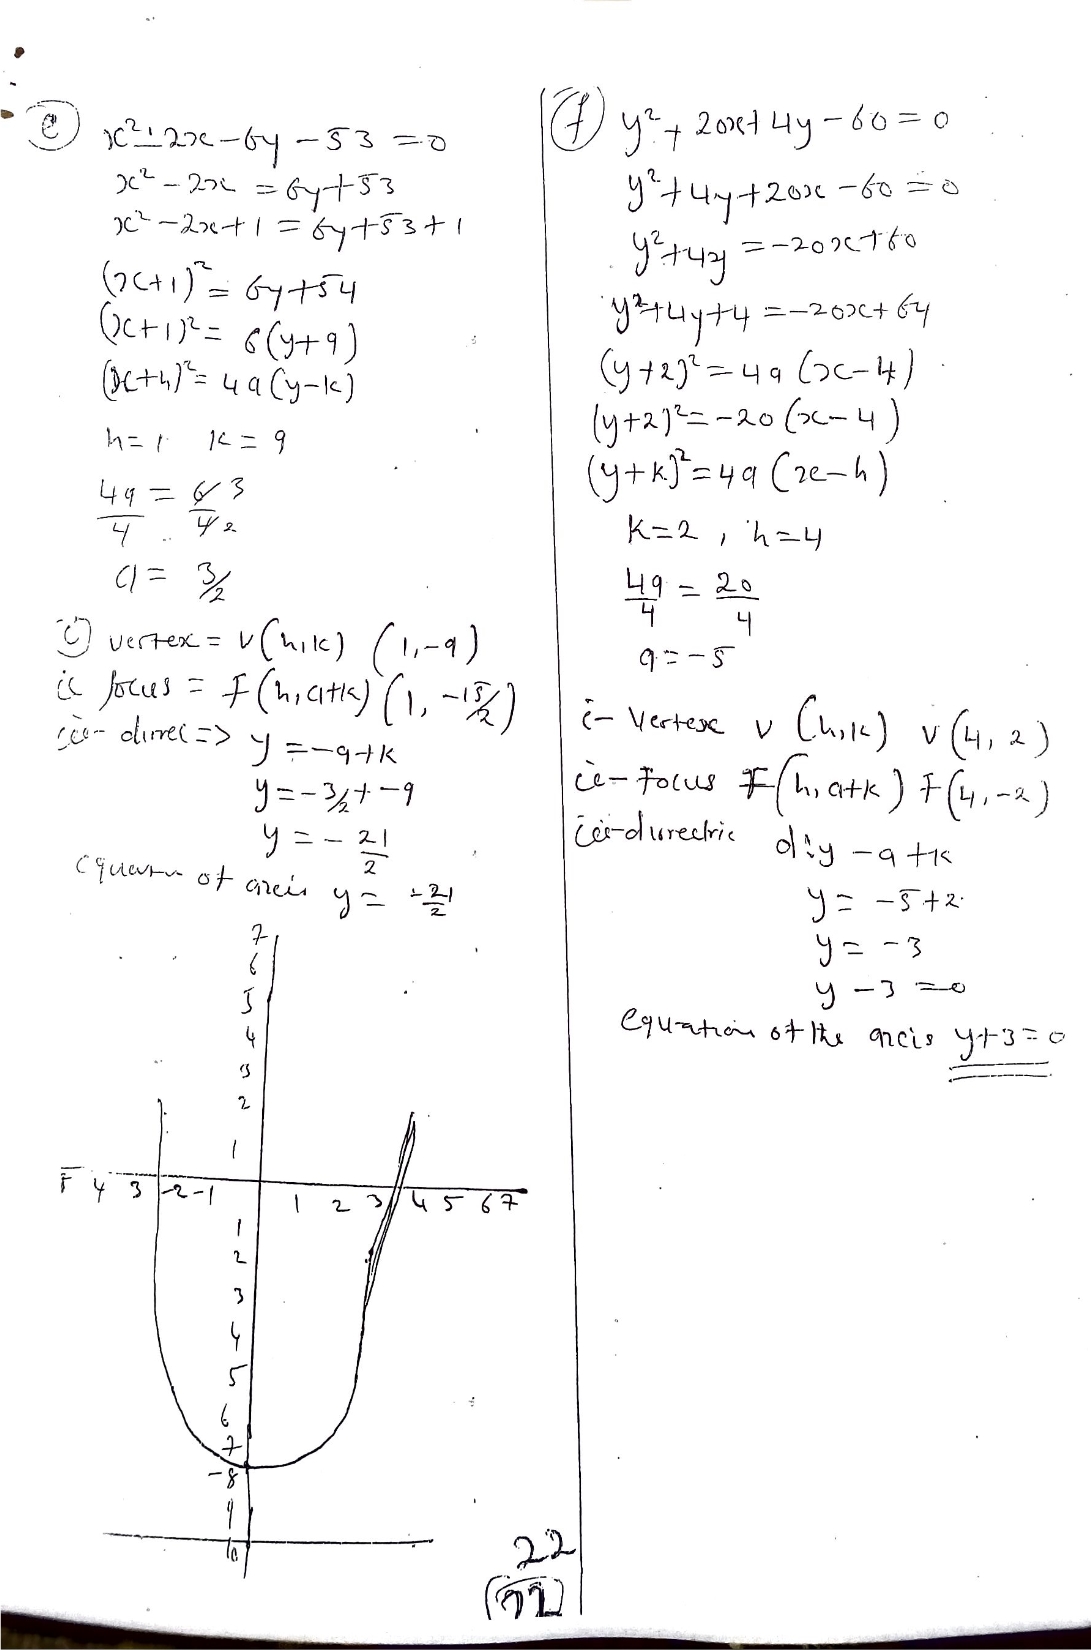 e
x² - 2x - 6y - 53 = 0
x² - 2x = 6y + 53
x² - 2x + 1 = 6y + 53 + 1
(x+1)² = 6y + 54
(x+1)² = 6(y+9)
(x+h)² = 4a(y-k)
h = 1 k = 9
4a/4 = 6/4 3/2
a = 3/2
i vertex = V(h,k) (1,-9)
ii focus = F(h,a+k) (1, -15/2)
iii- direc => y = -a+k
y = -3/2 + -9
y = - 21/2
equation of axis y = -21/2
7
6
5
4
3
2
1
5 4 3 -2 -1 1 2 3 4 5 6 7
1
2
3
4
5
6
7
-8
9
10
f
y² + 20x + 4y - 60 = 0
y² + 4y + 20x - 60 = 0
y² + 4y = -20x + 60
y² + 4y + 4 = -20x + 64
(y+2)² = 4a (x-4)
(y+2)² = -20 (x-4)
(y+k)² = 4a (x-h)
k = 2 , h = 4
4a/4 = 20/4
a = -5
i- Vertex V (h,k) V(4, 2)
ii- Focus F(h, a+k) F(4,-2)
iii- directric d:y -a+k
y = -5+2
y = -3
y - 3 = 0
equation of the axis y+3=0
22